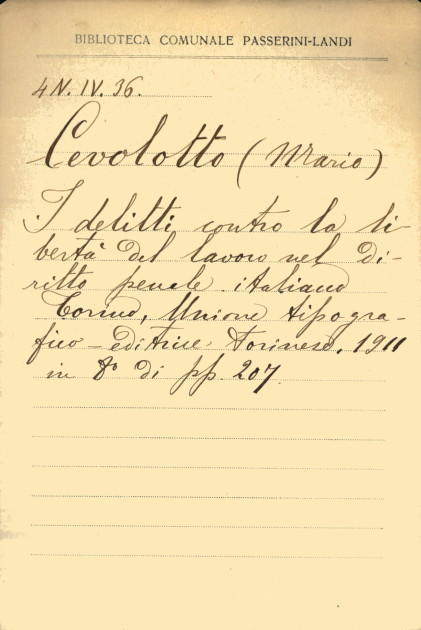 BIBLIOTECA COMUNALE PASSERINI-LANDI
4 N. IV. 36.
Cevolotto (Mario)
I delitti contro la li-
bertà del lavoro nel di-
ritto penale italiano
Torino, Unione tipogra-
fico-editrice torinese, 1911
in 8º di pp. 207